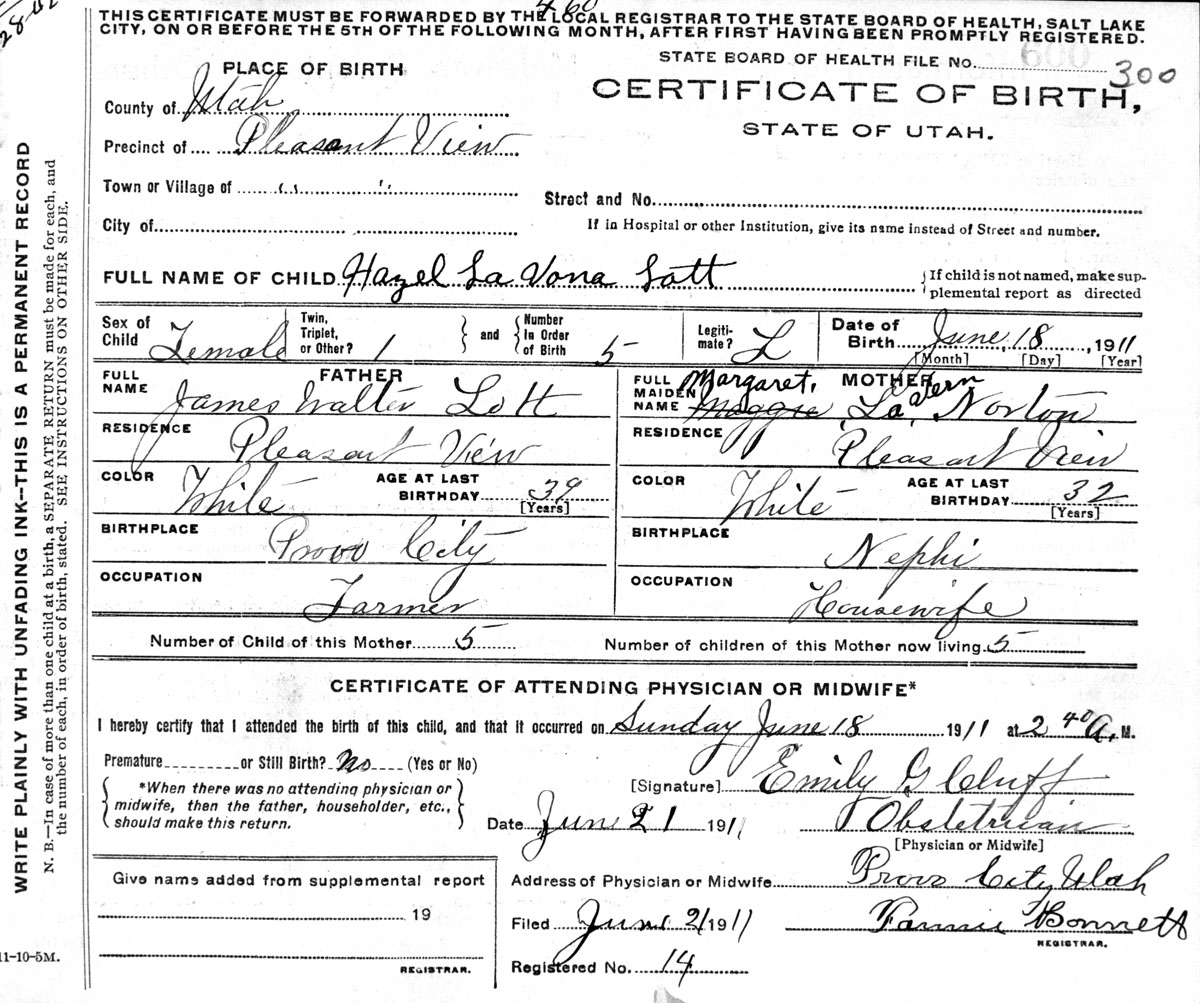 28-02
460
THIS CERTIFICATE MUST BE FORWARDED BY THE LOCAL REGISTRAR TO THE STATE BOARD OF HEALTH, SALT LAKE
CITY, ON OR BEFORE THE 5TH OF THE FOLLOWING MONTH, AFTER FIRST HAVING BEEN PROMPTLY REGISTERED.
STATE BOARD OF HEALTH FILE NO. 300
CERTIFICATE OF BIRTH,
STATE OF UTAH.
PLACE OF BIRTH
County of Utah
Precinct of Pleasant View
Town or Village of " "
Street and No.
City of
If in Hospital or other Institution, give its name instead of Street and number.
FULL NAME OF CHILD Hazel La Vona Lott
{If child is not named, make sup-
plemental report as directed
Sex of Child Female
Twin, Triplet, or Other? 1
and
Number in Order of Birth 5
Legiti-mate? L
Date of Birth June, 18, 1911
[Month] [Day] [Year]
FATHER
FULL NAME James Walter Lott
MOTHER
FULL MAIDEN NAME Margaret, Maggie La Vern Norton
RESIDENCE Pleasant View
RESIDENCE Pleasant View
COLOR White AGE AT LAST BIRTHDAY 39 [Years]
COLOR White AGE AT LAST BIRTHDAY 32 [Years]
BIRTHPLACE Provo City
BIRTHPLACE Nephi
OCCUPATION Farmer
OCCUPATION Housewife
Number of Child of this Mother 5 Number of children of this Mother now living 5
CERTIFICATE OF ATTENDING PHYSICIAN OR MIDWIFE*
I hereby certify that I attended the birth of this child, and that it occurred on Sunday June 18 1911 at 2 40 A. M.
Premature or Still Birth? No (Yes or No)
*When there was no attending physician or
midwife, then the father, householder, etc.,
should make this return.
[Signature] Emily G Cluff
Date June 21 1911 Obstetrician
[Physician or Midwife]
Give name added from supplemental report
19
REGISTRAR.
Address of Physician or Midwife Provo City Utah
Filed June 21 1911 Fannie Bonnett
REGISTRAR.
Registered No. 14
11-10-5M.
WRITE PLAINLY WITH UNFADING INK--THIS IS A PERMANENT RECORD
N. B.—In case of more than one child at a birth, a SEPARATE RETURN must be made for each, and
the number of each, in order of birth, stated. SEE INSTRUCTIONS ON OTHER SIDE.